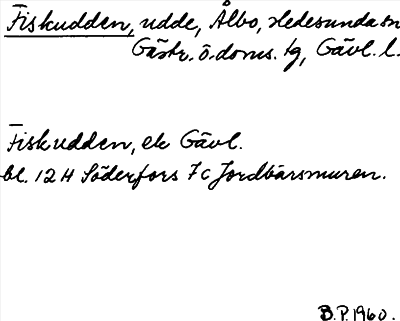 Fiskudden, udde, Ålbo, Hedesunda sn
Gästr. ö. doms. tg, Gävl. l.
Fiskudden, ek Gävl.
bl. 12 H Söderfors 7 c Jordbärsmuren.
B.P. 1960.